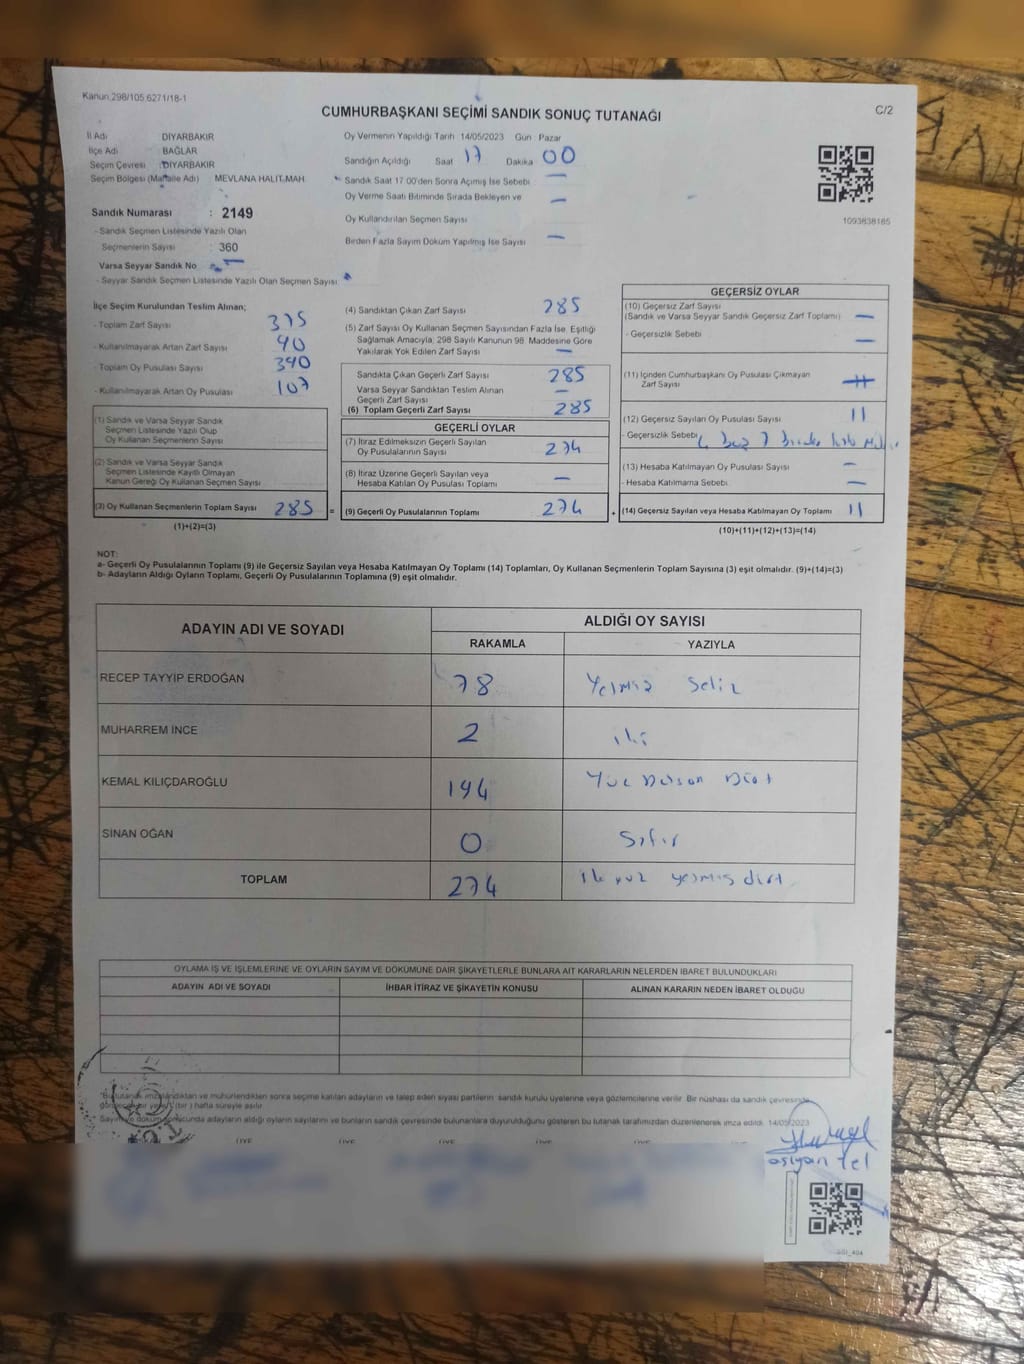 Kanun 298/105,6271/18-1
CUMHURBAŞKANI SEÇİMİ SANDIK SONUÇ TUTANAĞI
C/2
İl Adı DİYARBAKIR
İlçe Adı BAĞLAR
Seçim Çevresi : DİYARBAKIR
Seçim Bölgesi (Mahalle Adı) MEVLANA HALİT MAH.
Sandık Numarası : 2149
- Sandık Seçmen Listesinde Yazılı Olan
Seçmenlerin Sayısı : 360
Varsa Seyyar Sandık No –
- Seyyar Sandık Seçmen Listesinde Yazılı Olan Seçmen Sayısı:
Oy Vermenin Yapıldığı Tarih 14/05/2023 Gün Pazar
Sandığın Açıldığı Saat 17 Dakika 00
Sandık Saat 17 00'den Sonra Açılmış İse Sebebi –
Oy Verme Saati Bitiminde Sırada Bekleyen ve –
Oy Kullandırılan Seçmen Sayısı
Birden Fazla Sayım Döküm Yapılmış İse Sayısı –
1093838185
İlçe Seçim Kurulundan Teslim Alınan;
- Toplam Zarf Sayısı 375
- Kullanılmayarak Artan Zarf Sayısı 90
- Toplam Oy Pusulası Sayısı 390
- Kullanılmayarak Artan Oy Pusulası 107
(1) Sandık ve Varsa Seyyar Sandık
Seçmen Listesinde Yazılı Olup
Oy Kullanan Seçmenlerin Sayısı
(2) Sandık ve Varsa Seyyar Sandık
Seçmen Listesinde Kayıtlı Olmayan
Kanun Gereği Oy Kullanan Seçmen Sayısı
(3) Oy Kullanan Seçmenlerin Toplam Sayısı 285 =
(1)+(2)=(3)
(4) Sandıktan Çıkan Zarf Sayısı 285
(5) Zarf Sayısı Oy Kullanan Seçmen Sayısından Fazla İse, Eşitliği
Sağlamak Amacıyla, 298 Sayılı Kanunun 98. Maddesine Göre
Yakılarak Yok Edilen Zarf Sayısı –
Sandıkta Çıkan Geçerli Zarf Sayısı 285
Varsa Seyyar Sandıktan Teslim Alınan
Geçerli Zarf Sayısı –
(6) Toplam Geçerli Zarf Sayısı 285
GEÇERLİ OYLAR
(7) İtiraz Edilmeksizin Geçerli Sayılan
Oy Pusulalarının Sayısı 274
(8) İtiraz Üzerine Geçerli Sayılan veya
Hesaba Katılan Oy Pusulası Toplamı –
(9) Geçerli Oy Pusulalarının Toplamı 274 +
GEÇERSİZ OYLAR
(10) Geçersiz Zarf Sayısı
(Sandık ve Varsa Seyyar Sandık Geçersiz Zarf Toplamı) –
- Geçersizlik Sebebi –
(11) İçinden Cumhurbaşkanı Oy Pusulası Çıkmayan
Zarf Sayısı
(12) Geçersiz Sayılan Oy Pusulası Sayısı 11
- Geçersizlik Sebebi
(13) Hesaba Katılmayan Oy Pusulası Sayısı –
- Hesaba Katılmama Sebebi –
(14) Geçersiz Sayılan veya Hesaba Katılmayan Oy Toplamı 11
(10)+(11)+(12)+(13)=(14)
NOT:
a- Geçerli Oy Pusulalarının Toplamı (9) ile Geçersiz Sayılan veya Hesaba Katılmayan Oy Toplamı (14) Toplamları, Oy Kullanan Seçmenlerin Toplam Sayısına (3) eşit olmalıdır. (9)+(14)=(3)
b- Adayların Aldığı Oyların Toplamı, Geçerli Oy Pusulalarının Toplamına (9) eşit olmalıdır.
ADAYIN ADI VE SOYADI ALDIĞI OY SAYISI
RAKAMLA YAZIYLA
RECEP TAYYİP ERDOĞAN 78 Yetmiş Sekiz
MUHARREM İNCE 2 iki
KEMAL KILIÇDAROĞLU 194 Yüz Doksan Dört
SİNAN OĞAN 0 Sıfır
TOPLAM 274 iki yüz yetmiş dört
OYLAMA İŞ VE İŞLEMLERİNE VE OYLARIN SAYIM VE DÖKÜMÜNE DAİR ŞİKAYETLERLE BUNLARA AİT KARARLARIN NELERDEN İBARET BULUNDUKLARI
ADAYIN ADI VE SOYADI İHBAR İTİRAZ VE ŞİKAYETİN KONUSU ALINAN KARARIN NEDEN İBARET OLDUĞU
*Bu tutanak imzalandıktan ve mühürlendikten sonra seçime katılan adayların ve talep eden siyasi partilerin sandık kurulu üyelerine veya gözlemcilerine verilir. Bir nüshası da sandık çevresinde
(bir) hafta süreyle asılır
Sayım ve döküm sonucunda adayların aldığı oyların sayılarını ve bunların sandık çevresinde bulunanlara duyurulduğunu gösteren bu tutanak tarafımızdan düzenlenerek imza edildi. 14/05/2023